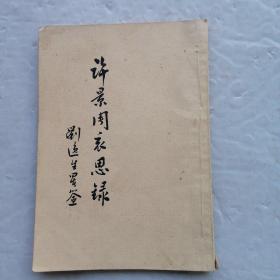 許景周哀思録
劉遠生署簽